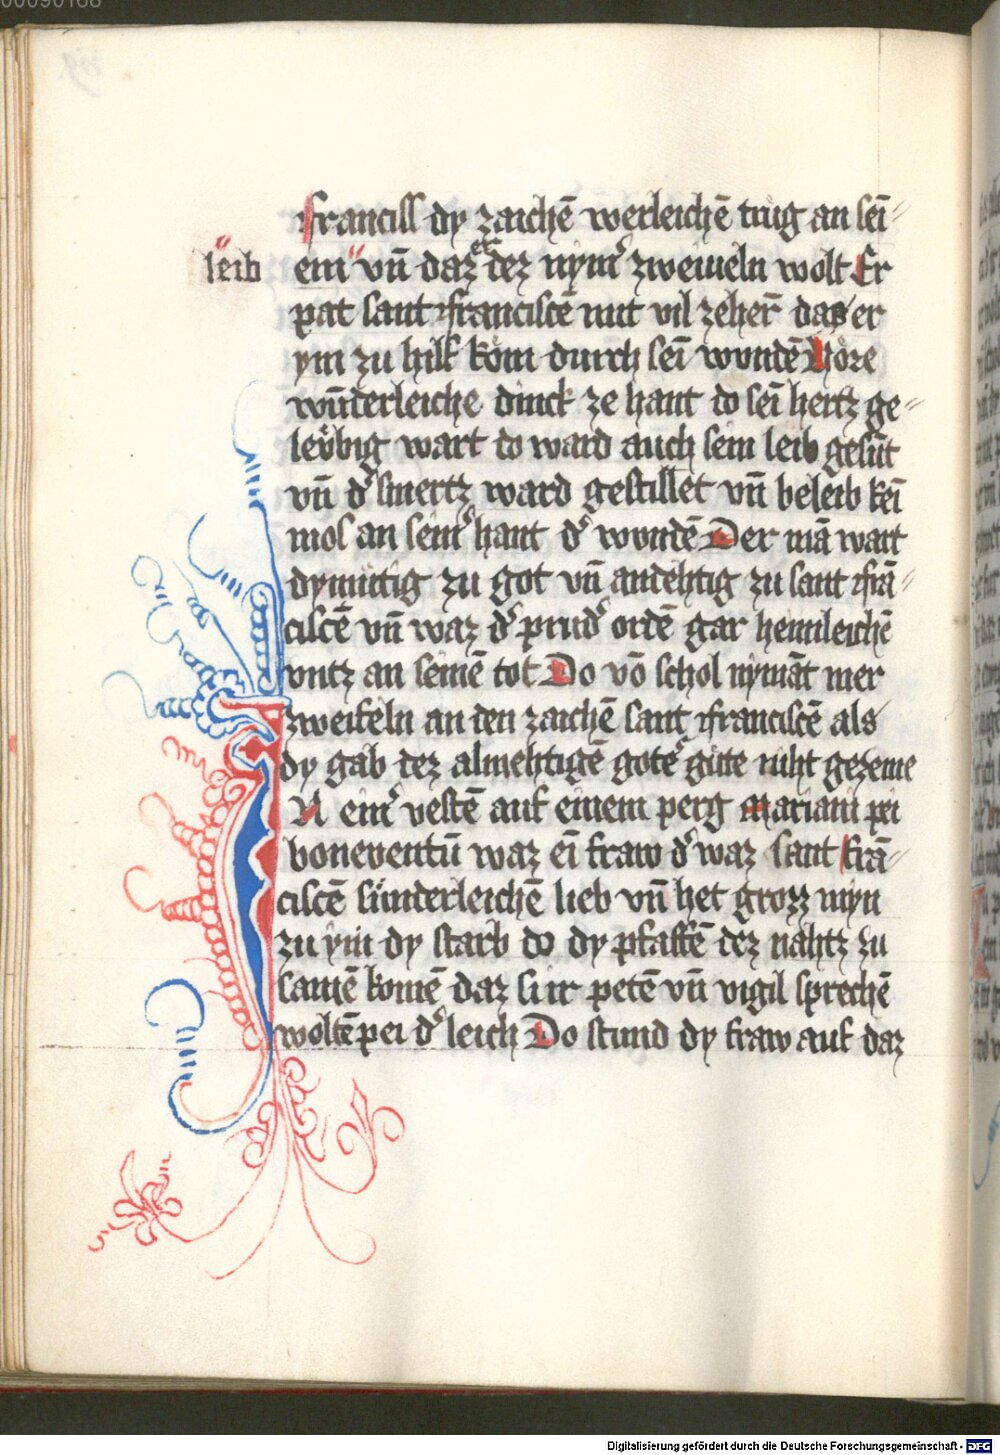 00090168
franciss dy zaichē werleichē trug an seī
leib em vn̄ daz er dez nym̉ zweiueln wolt Er
pat sant franciscē mit vil zeher̄ das er
ym zu hilf kȯm durch seī wundē Hȯre
wūderleiche dinck ze hant do seī hertz ge
lewbig wart do ward auch sein leib gesūt
vn̄ d̉ smertz ward gestillet vn̄ beleib keī
mos an sein̉ hant d̉ wundē Der mā wart
dymutig zu got vn̄ andehtig zu sant frā
ciscē vn̄ waz d̉ prud̉ ordē gar heimleichē
vntz an seinē tot Do vō schol nymāt mer
zweifeln an den zaichē sant franciscē als
dy gab dez almehtigē gotes gute niht gezeme
IN ein̉ vestē auf einem perg mariani pei
boneuentū waz eī fraw d̉ waz sant frā
ciscē sunderleichē lieb vn̄ het grozz myn
zu ym dy starb do dy pfaffē dez nahtz zu
samē komē daz si ir petē vn̄ vigil sprechē
woltē pei d̉ leich Do stund dy fraw auf daz
Digitalisierung gefördert durch die Deutsche Forschungsgemeinschaft - DFG